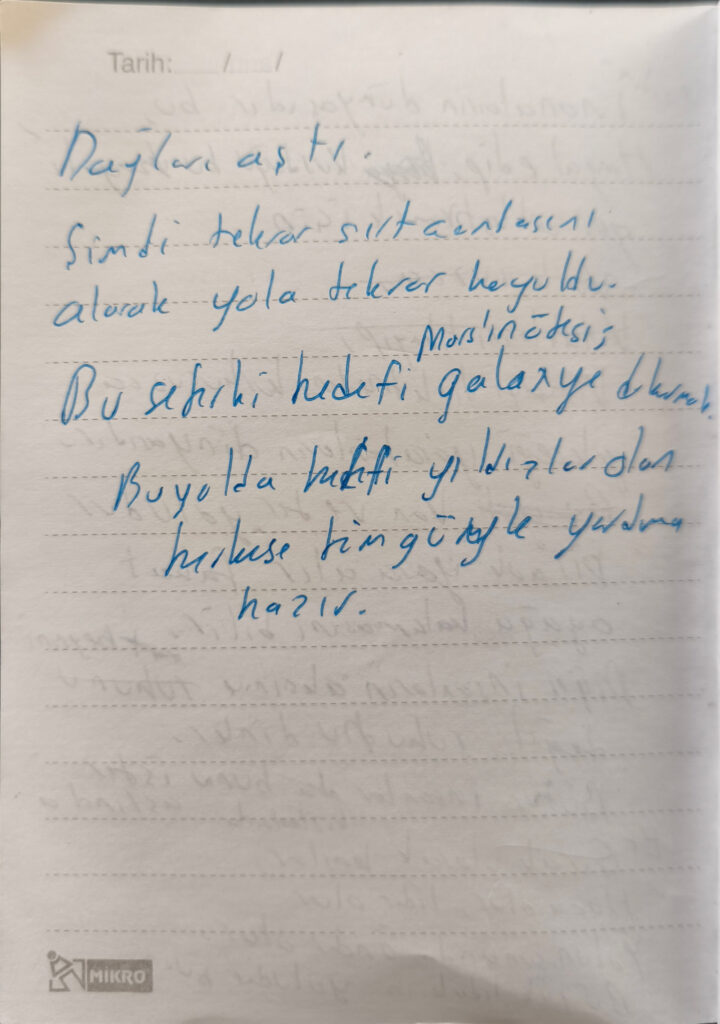 Tarih: / /
Dağları aştı.
Şimdi tekrar sırt çantasını
alarak yola tekrar koyuldu.
Mars'ın ötesi;
Bu seferki hedefi galaxye
Bu yolda hedefi yıldızlar olan
herkese tüm gücüyle yardıma
hazır.
MİKRO